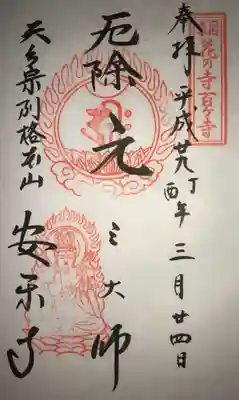 関東花の寺百ヶ寺
奉拝 平成廿九丁酉年三月廿四日
厄除 元三大師
天台宗別格本山 安楽寺